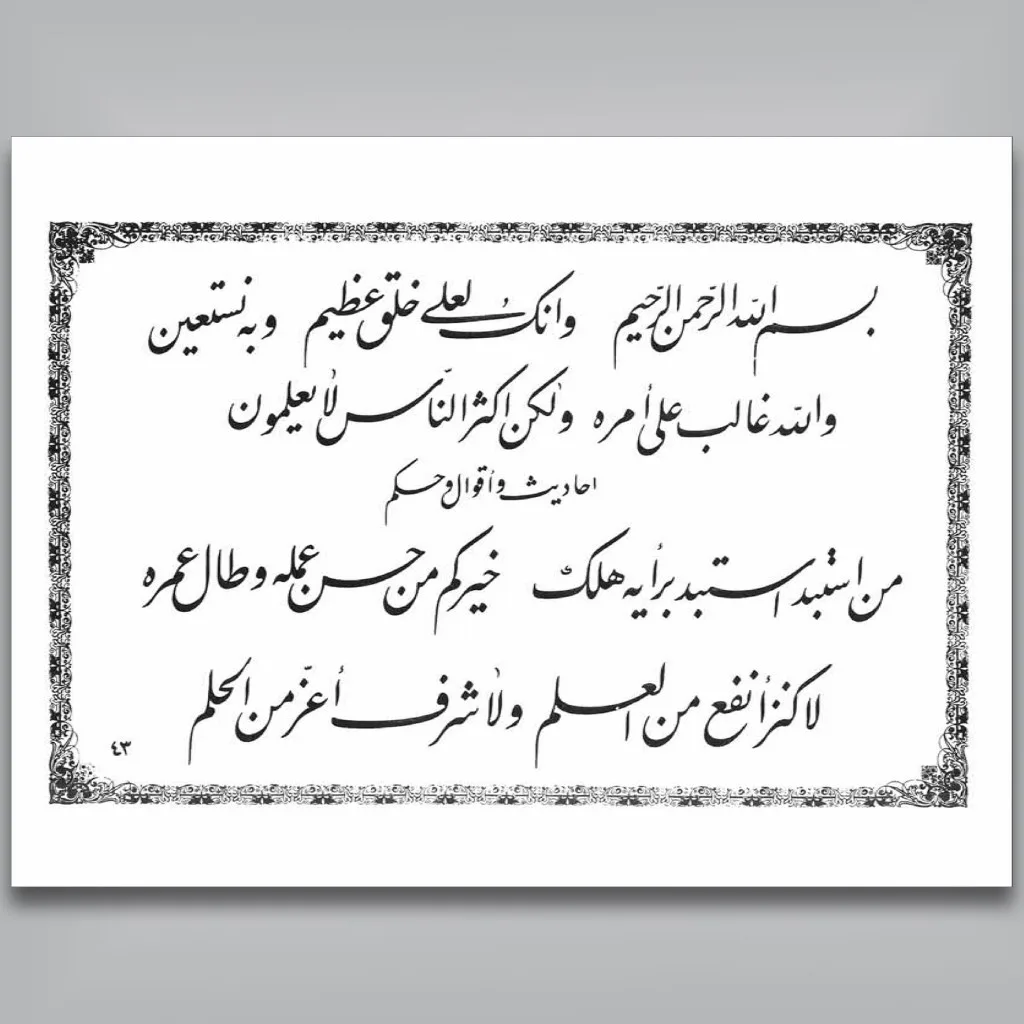 بسم الله الرّحمن الرّحيم وانك لعلى خلق عظيم وبه نستعين
والله غالب على أمره ولكن اكثر النّاس لا يعلمون
احاديث وأقوال وحكم
من استبد برأيه هلك خيركم من حسن عمله وطال عمره
لا كنز أنفع من العلم ولا شرف أعزّ من الحلم
٤٣